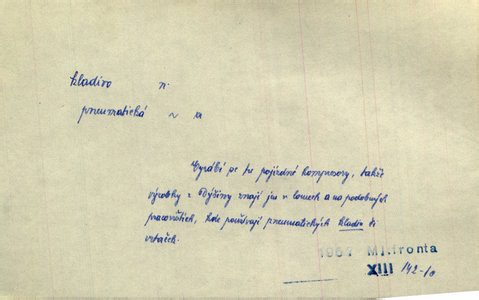 kladivo n.
pneumatická ~ a
Vyrábí se tu pojízdné kompresory, takže
výrobky z Dýšiny znají jen v lomech a na podobných
pracovištích, kde používají pneumatických kladiv či
vrtaček.
1961 Ml.fronta
XIII 142-10